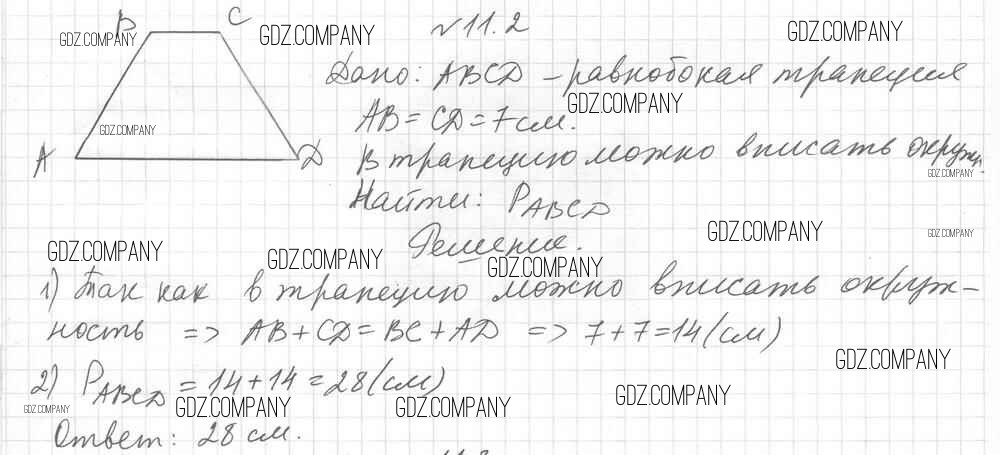 B C
№ 11.2
GDZ.COMPANY GDZ.COMPANY GDZ.COMPANY
Дано: ABCD – равнобокая трапеция
GDZ.COMPANY
AB = CD = 7 см.
GDZ.COMPANY
A D
В трапецию можно вписать окружн.
GDZ.COMPANY
Найти: PABCD
GDZ.COMPANY GDZ.COMPANY
Решение.
GDZ.COMPANY GDZ.COMPANY GDZ.COMPANY
1) Так как в трапецию можно вписать окруж-
ность => AB + CD = BC + AD => 7 + 7 = 14 (см)
GDZ.COMPANY
2) PABCD = 14 + 14 = 28 (см)
GDZ.COMPANY GDZ.COMPANY GDZ.COMPANY GDZ.COMPANY
Ответ: 28 см.